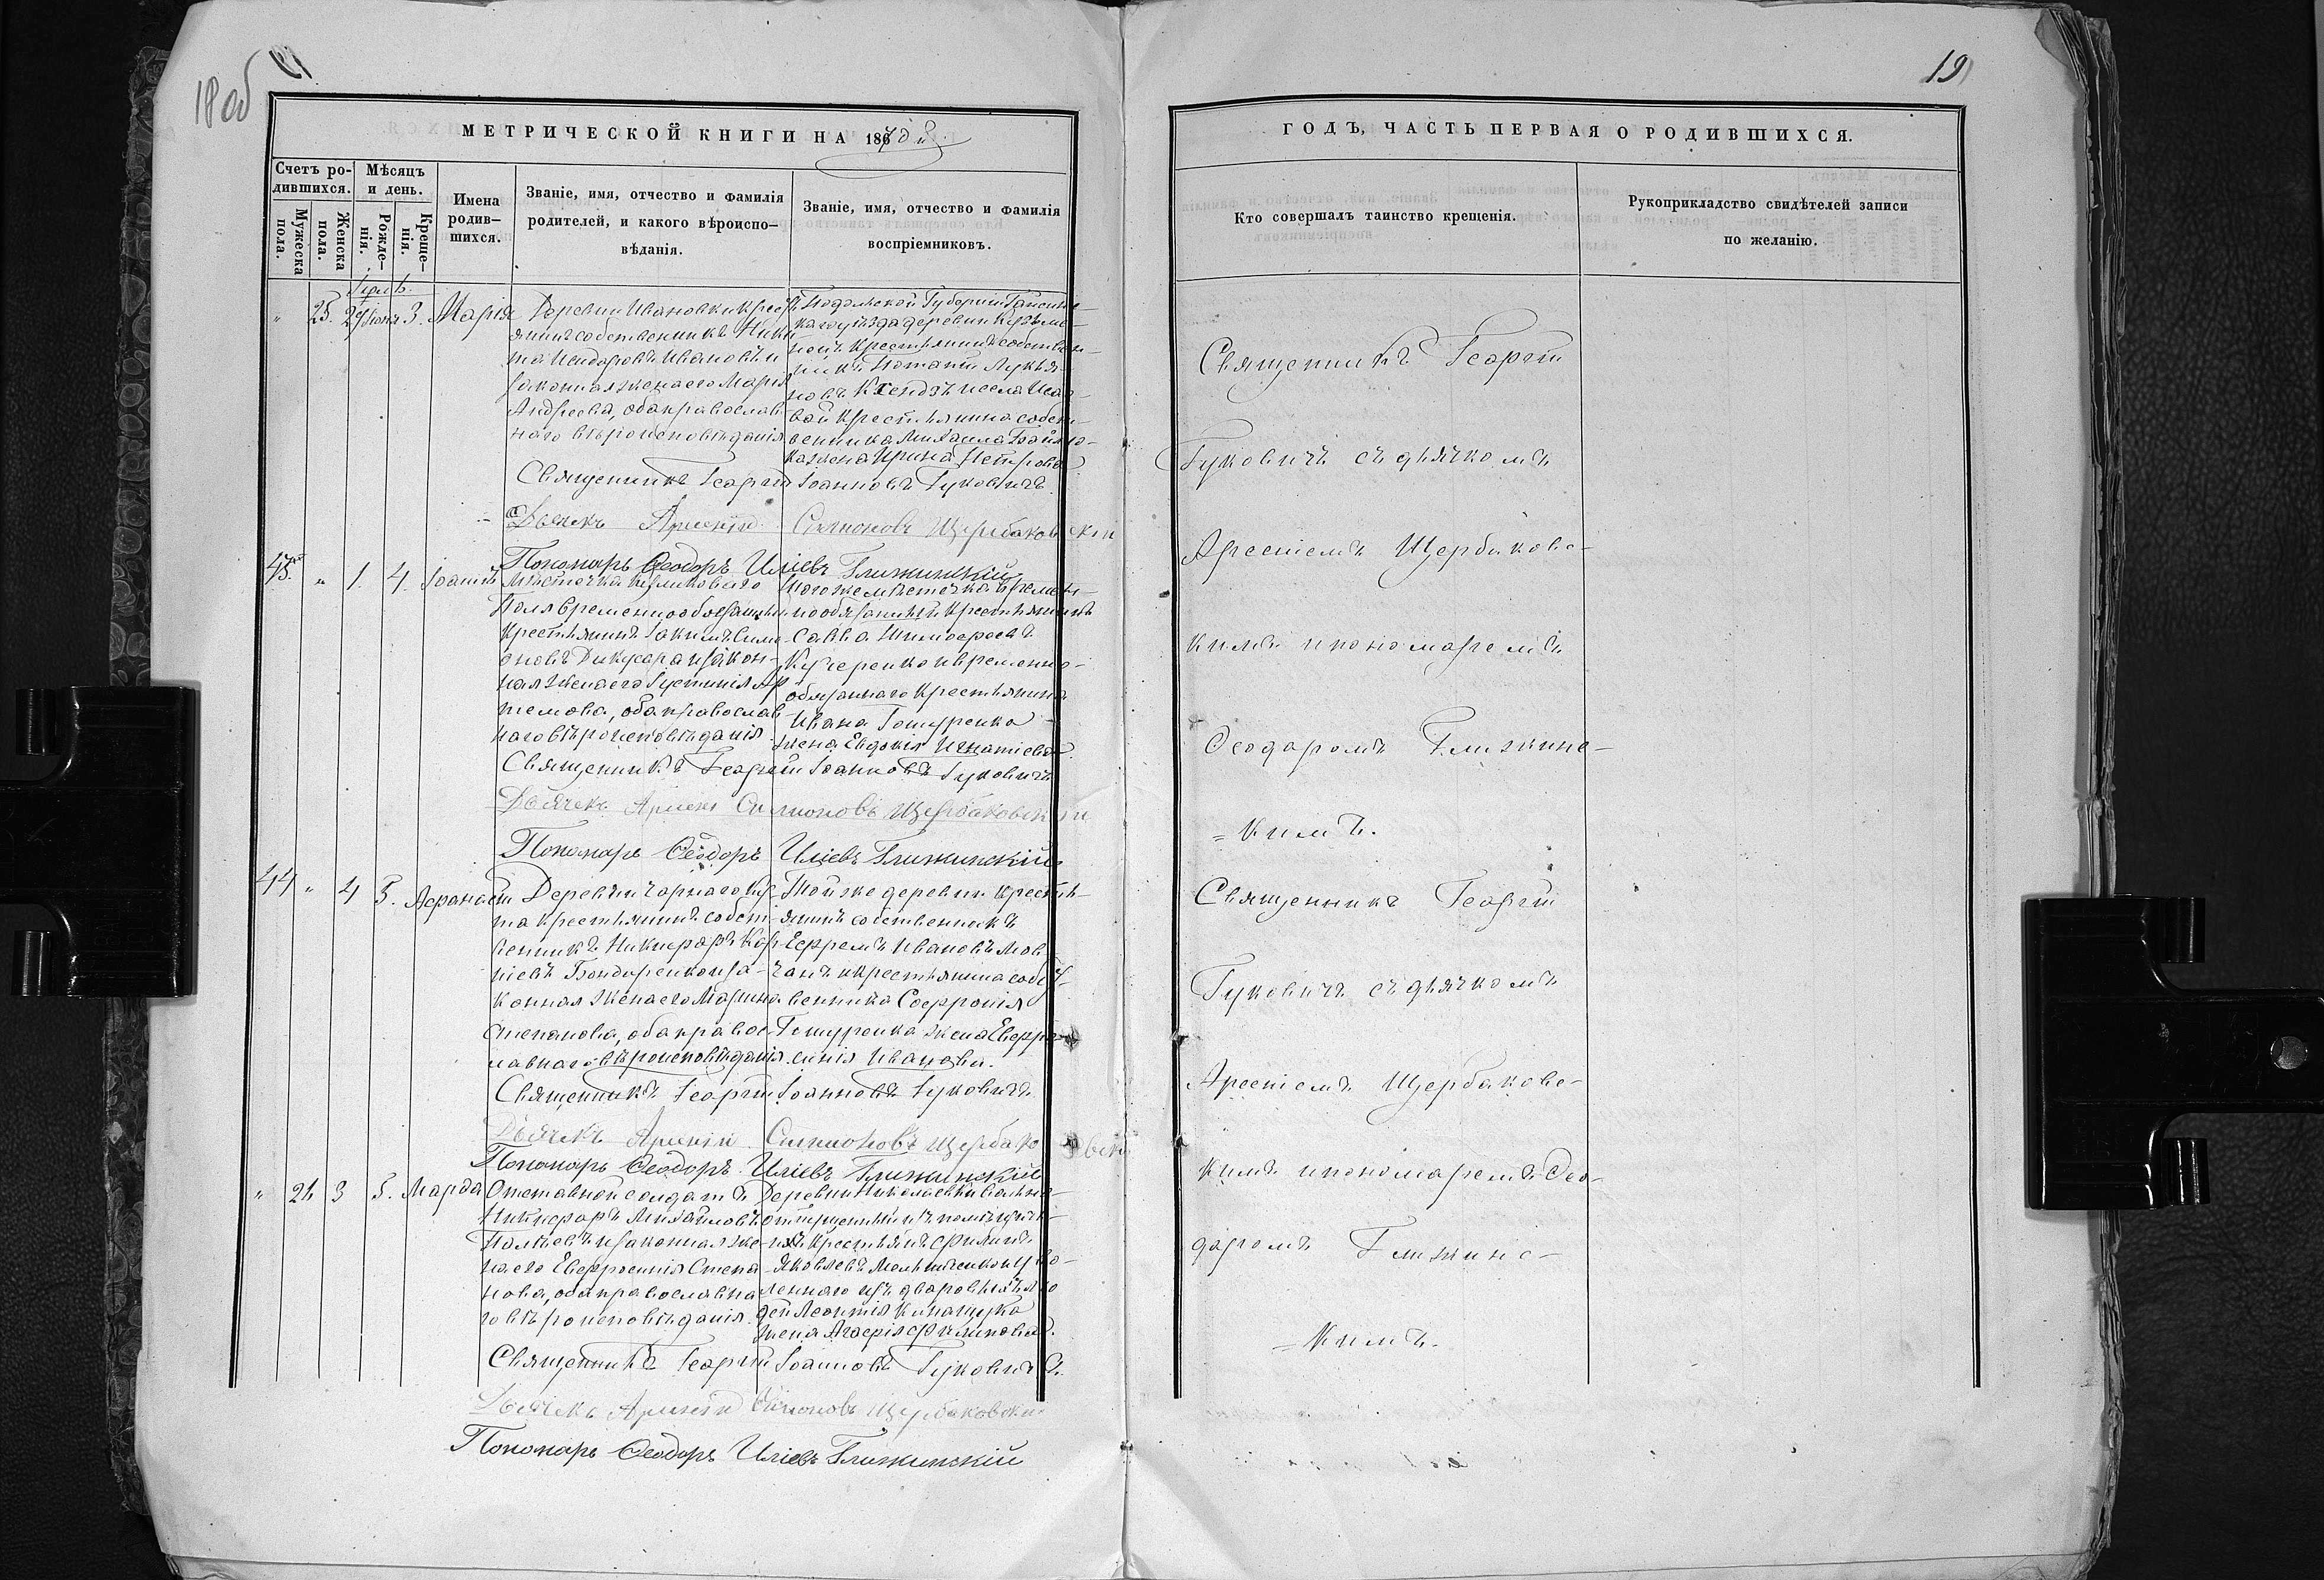 18 об
19
МЕТРИЧЕСКОЙ КНИГИ НА 1870 й
Счетъ ро-
дившихся.
Мѣсяцъ
и день.
Мужеска
пола.
Женска
пола.
Рожде-
нія.
Креще-
нія.
Имена
родив-
шихся.
Званіе, имя, отчество и фамилія
родителей, и какого вѣроиспо-
вѣданія.
Званіе, имя, отчество и фамилія
воспріемниковъ.
Іюль
" 25. 29 Іюня 3. Марія
Деревни Ивановки крест
янинъ собственникъ Ники
та Исидоровъ Ивановъ и
законная жена его Марія
Андреева, оба православ
наго вѣроисповѣданія
Подольской Губерніи Гайсин
каго уѣзда деревни
крестьянинъ собствен-
никъ Потапій Лукья
новъ и села
вой крестьянина собст-
венника Михаила
жена Ирина Петрова
Священникъ Георгій Іоанновъ Гуковичъ
Дьячекъ Арсеній Симоновъ Щербаковскій
Пономарь Ѳеодоръ Иліевъ Глижинскій
43. " 1. 4. Іоаннъ
Мѣстечка
Поля временнообязанный
крестьянинъ Іакимъ Симе
оновъ Дикусара и закон-
ная жена его Іустинія Ар
темова, оба православ
наго вѣроисповѣданія
Того же мѣстечка времен-
нообязанный крестьянинъ
Савва Тимофеевъ
Кучеренко и временно-
обязаннаго крестьянина
Ивана Гошуренка
жена Евдокія Игнатіева
Священникъ Георгій Іоанновъ Гуковичъ
Дьячекъ Арсеній Симоновъ Щербаковскій
Пономарь Ѳеодоръ Иліевъ Глижинскій
44 " 4 5. Афанасій
Деревни Чарнаго Кус
та крестьянинъ собст-
венникъ Никифоръ Кор
ніевъ Бондаренко и за-
конная жена его Марина
Степанова, оба правос
лавнаго вѣроисповѣданія
Той же деревни крестья-
янинъ собственникъ
Ефремъ Ивановъ Мов
чанъ и крестьянина собст-
венника Софронія
Гошуренка жена Евфро
синія Иванова.
Священникъ Георгій Іоанновъ Гуковичъ
Дьячекъ Арсеній Симоновъ Щербаковскій
Пономарь Ѳеодоръ Иліевъ Глижинскій
" 26 3 5. Марѳа
Отставной солдатъ
Никифоръ Михайловъ
и законная же-
на его Евфросинія Степа-
нова, оба православна
го вѣроисповѣданія
Деревни Николаевки вольно-
отпущенный изъ помѣщичь-
ихъ крестьянъ Филипъ
Яковлевъ и уво-
леннаго изъ дворовыхъ лю
дей Леонтія Кинащука
жена Агафія Филипова.
Священникъ Георгій Іоанновъ Гуковичъ
Дьячекъ Арсеній Симоновъ Щербаковскій
Пономарь Ѳеодоръ Иліевъ Глижинскій
ГОДЪ, ЧАСТЬ ПЕРВАЯ О РОДИВШИХСЯ.
Кто совершалъ таинство крещенія.
Рукоприкладство свидѣтелей записи
по желанію.
Священникъ Георгій
Гуковичъ съ дьячкомъ
Арсеніемъ Щербаковс-
кимъ и пономаремъ
Ѳеодоромъ Глижинс-
=кимъ.
Священникъ Георгій
Гуковичъ съ дьячкомъ
Арсеніемъ Щербаковс-
кимъ и пономаремъ Ѳео-
доромъ Глижинс-
=кимъ.